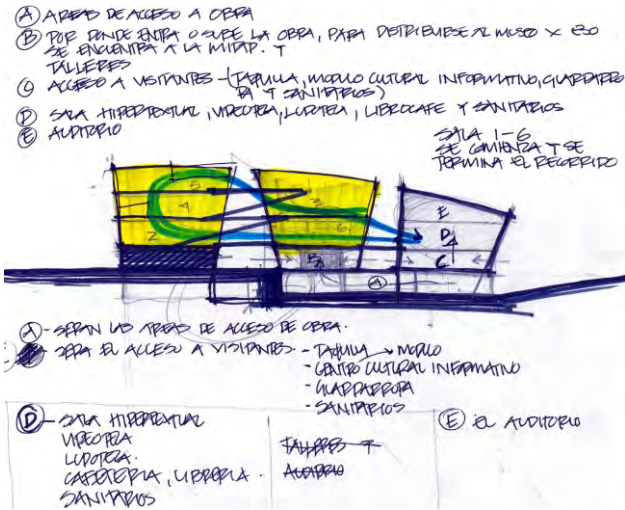 Ⓐ AREAS DE ACCESO A OBRA
Ⓑ POR DONDE ENTRA O SUBE LA OBRA, PARA DISTRIBUIRSE AL MUSEO X ESO
SE ENCUENTRA A LA MITAD. Y
TALLERES
Ⓒ ACCESO A VISITANTES - (TAQUILLA, MODULO CULTURAL INFORMATIVO, GUARDARRO
PA Y SANITARIOS)
Ⓓ SALA HIPERTEXTUAL, VIDEOTECA, LUDOTECA, LIBROCAFE Y SANITARIOS
Ⓔ AUDITORIO
SALA 1-6
SE COMIENZA Y SE
TERMINA EL RECORRIDO
5
4
2
6
E
D
C
B
A
Ⓐ - SERAN LAS AREAS DE ACCESO DE OBRA.
SERA EL ACCESO A VISITANTES. - TAQUILLA → MODULO
- CENTRO CULTURAL INFORMATIVO
- GUARDARROPA
- SANITARIOS
Ⓓ - SALA HIPERTEXTUAL
VIDEOTECA
LUDOTECA.
CAFETERIA, LIBRERIA.
SANITARIOS
TALLERES Y
AUDITORIO
Ⓔ EL AUDITORIO